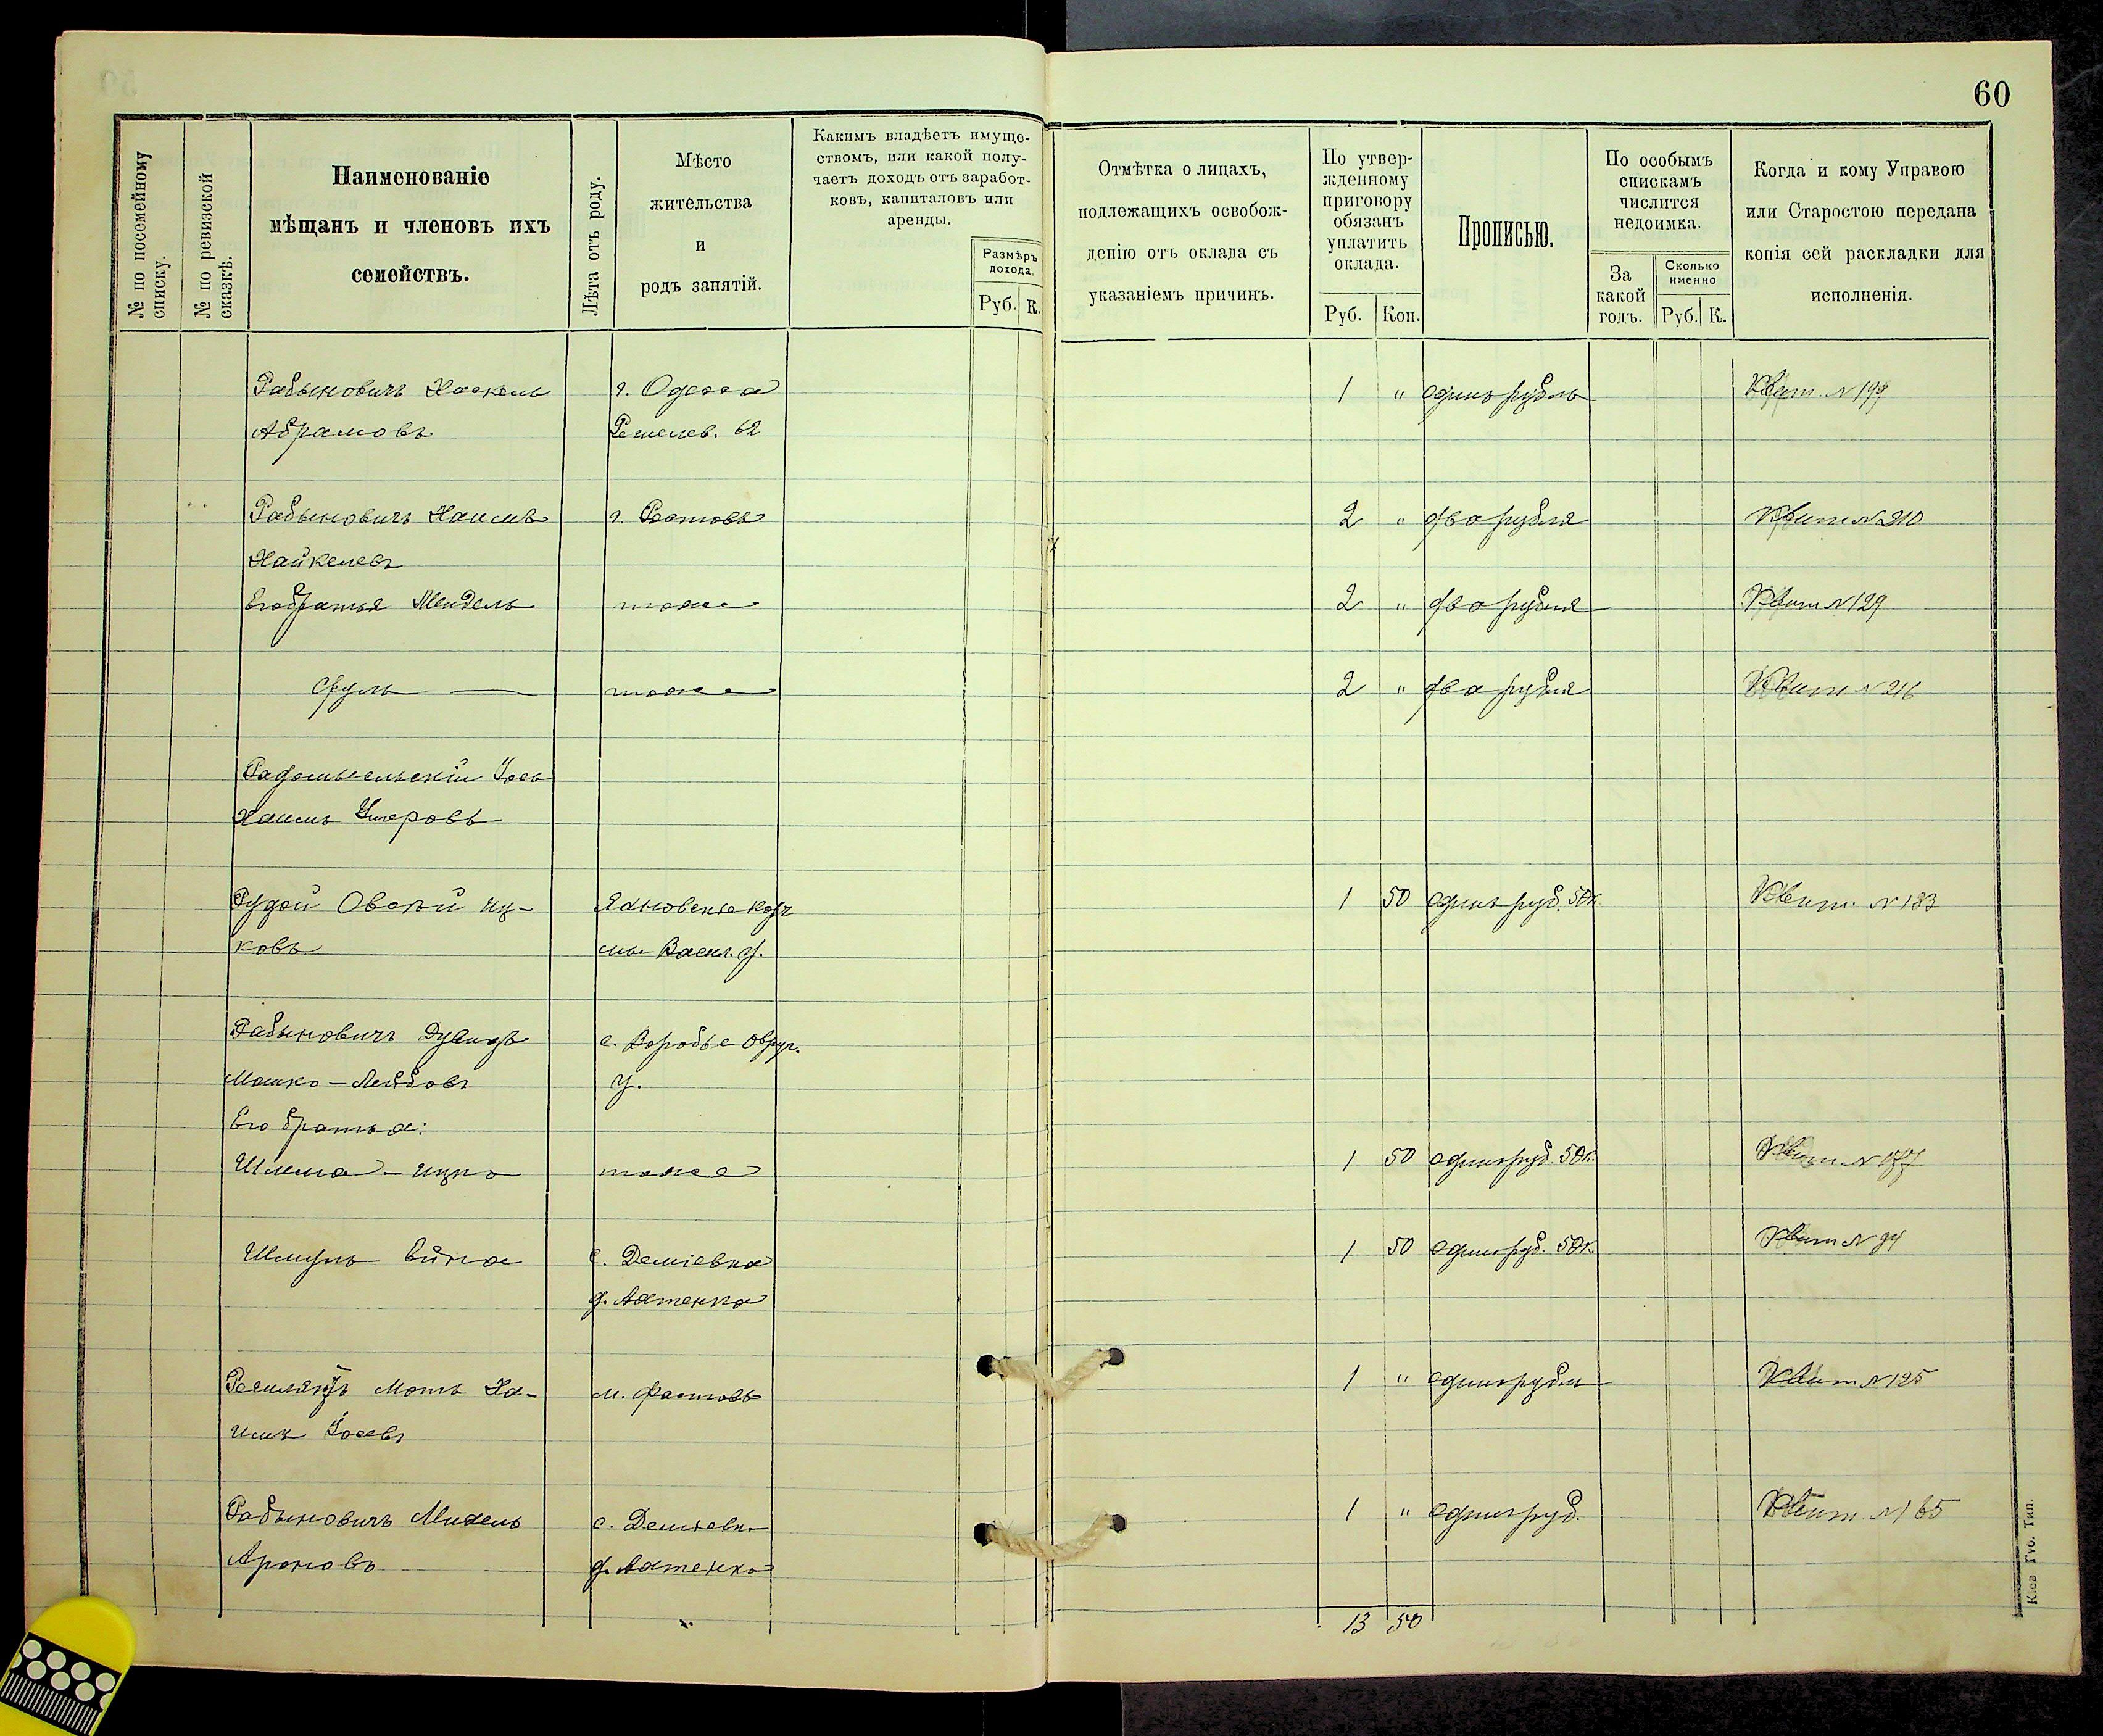 60
№ по посемейному списку.
№ по ревизской сказкѣ.
Наименованіе
мѣщанъ и членовъ ихъ
семействъ.
Лѣта отъ роду.
Мѣсто
жительства
и
родъ занятій.
Какимъ владѣетъ имуще-
ствомъ, или какой полу-
чаетъ доходъ отъ заработ-
ковъ, капиталовъ или
аренды.
Размѣръ
дохода.
Руб. К.
Отмѣтка о лицахъ,
подлежащихъ освобож-
денію отъ оклада съ
указаніемъ причинъ.
По утвер-
жденному
приговору
обязанъ
уплатить
оклада.
Руб. Коп.
Прописью.
По особымъ
спискамъ
числится
недоимка.
За
какой
годъ.
Сколько
именно
Руб. К.
Когда и кому Управою
или Старостою передана
копія сей раскладки для
исполненія.
Рабыновичъ Хаскель г. Одесса 1 " одинъ рубль Квит. № 199
Абрамовъ Ришельев. 62
Рабыновичъ Хаимъ г. Ростовъ 2 " два рубля Квит № 210
Хайкелевъ
Его братья Мендель тоже 2 " два рубля Квит № 129
Сруль — тоже 2 " два рубля Квит № 216
Радомысльскій Іось
Хаимъ Умеровъ
Рудой Овсѣй Иц- 1 50 одинъ руб. 50 к. Квит. № 183
ковъ Васил. у.
Рабыновичъ Дувидъ с. Воробье Овруч.
Мошко-Лейбовъ у.
Его братья:
Шлема-Ицко тоже 1 50 одинъ руб. 50 к. Квит №
Шмуль с. Деміевка 1 50 одинъ руб. 50 к. Квит № 94
Мотъ Ха- м. Фастовъ 1 " одинъ рубль Квит № 125
имъ Іосевъ
Рабыновичъ Михель с. Деміевк. 1 " одинъ руб. Квит. № 165
Ароновъ
13 50
Кіев. Губ. Тип.